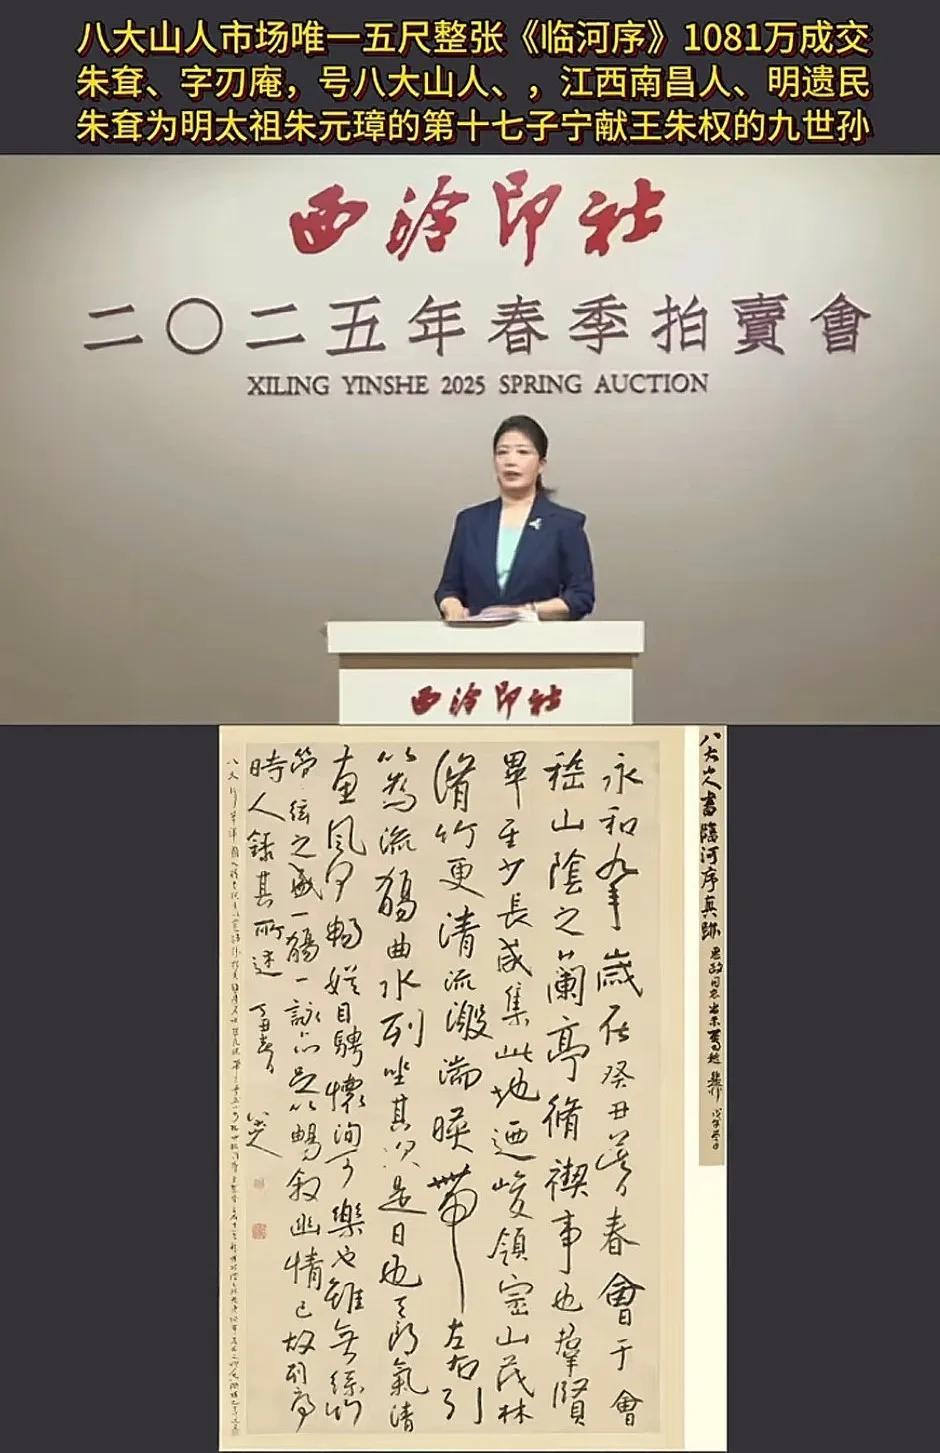 八大山人市场唯一五尺整张《临河序》1081万成交
朱耷、字刃庵，号八大山人、，江西南昌人、明遗民
朱耷为明太祖朱元璋的第十七子宁献王朱权的九世孙
西泠印社
二〇二五年春季拍賣會
XILING YINSHE 2025 SPRING AUCTION
西泠印社
八大山人書臨河序真跡
永和九年歲在癸丑暮春會于會
稽山陰之蘭亭脩禊事也羣賢
畢至少長咸集此地迺峻領崇山茂林
脩竹更清流激湍暎帶左右引
以為流觴曲水列坐其次是日也天朗氣清
惠風和暢娛目騁懷洵可樂也雖無絲竹
管絃之盛一觴一詠亦足以暢敘幽情已故列序
時人錄其所述 丁丑春日 八大